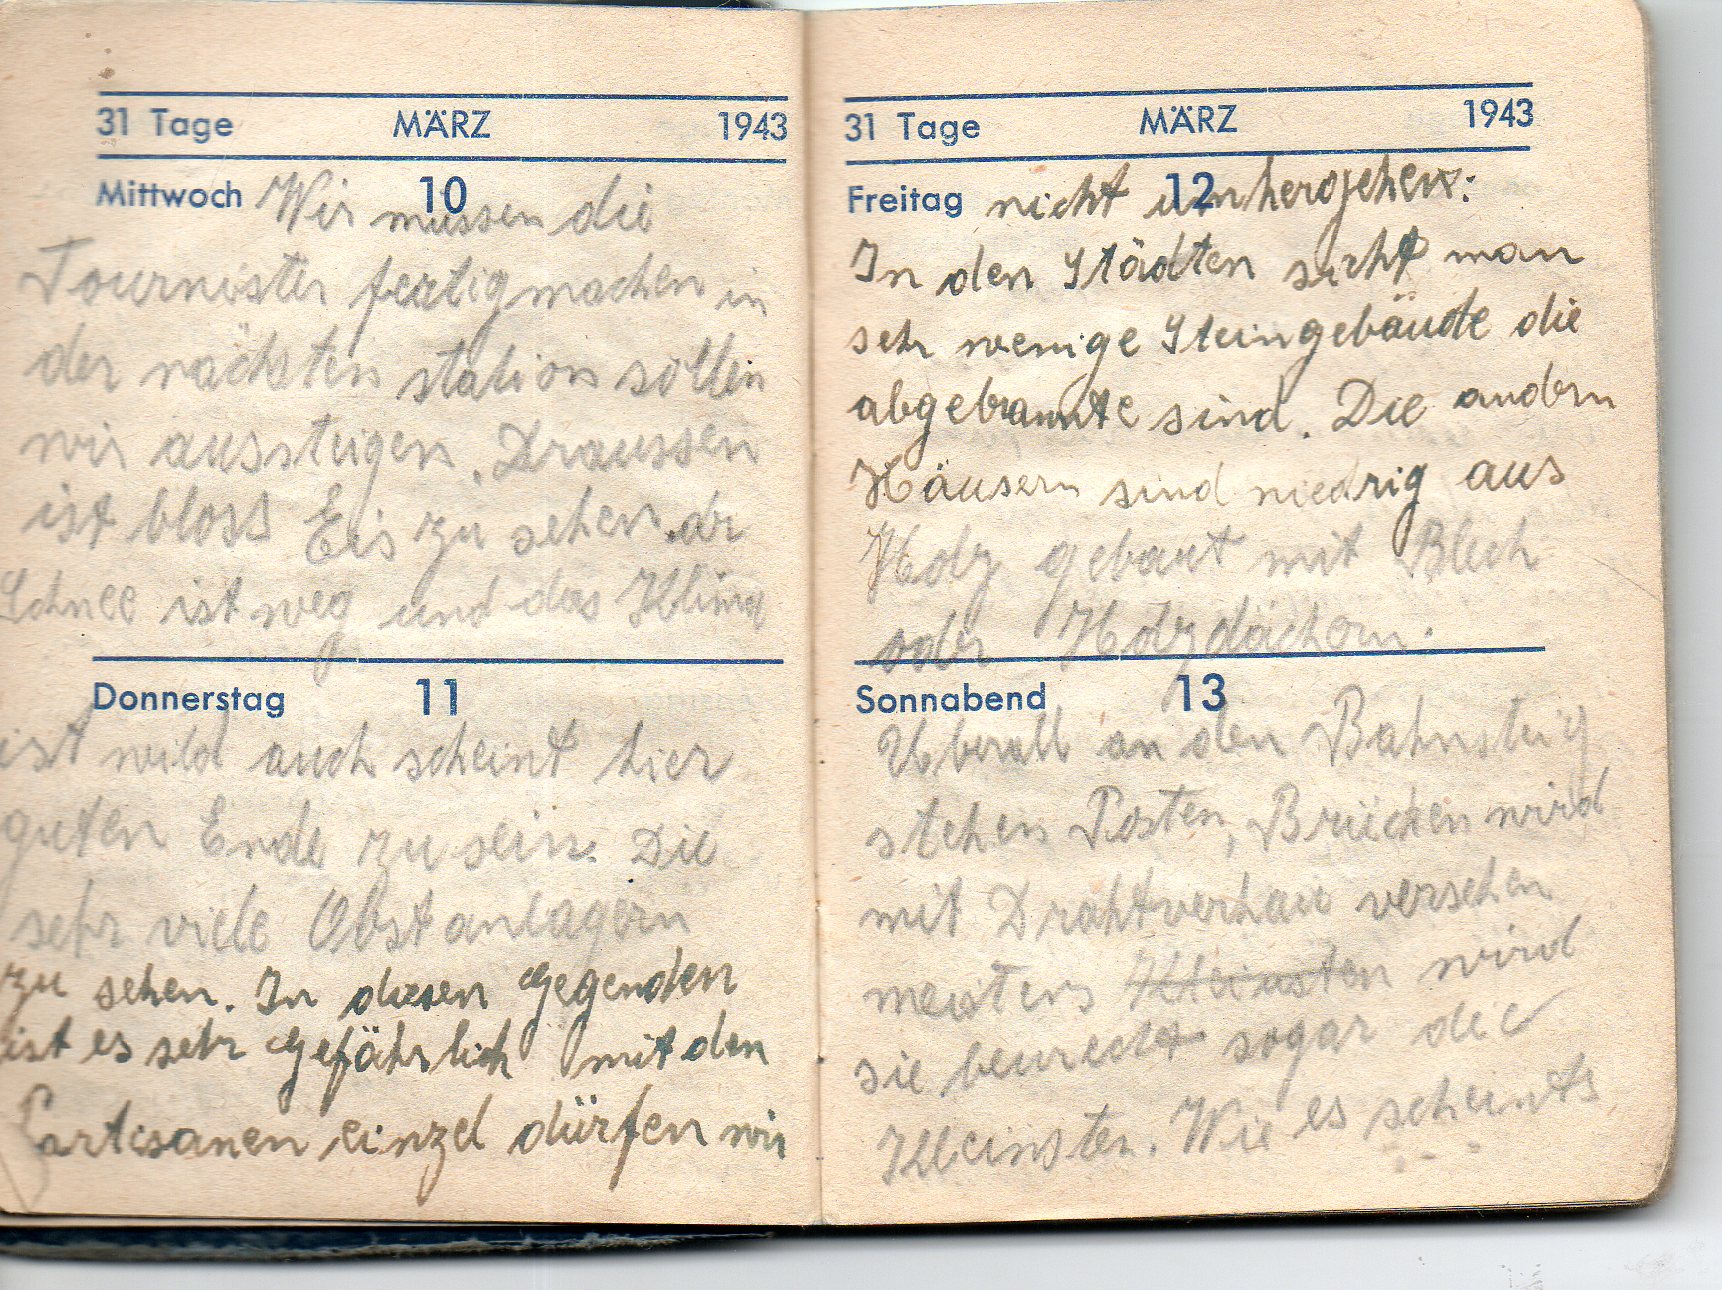 31 Tage MÄRZ 1943
Mittwoch 10 Wir müssen die
Tournister fertigmachen in
der nächsten station sollen
wir aussteigen. Draussen
ist bloss Eis zu sehen. dr
Schnee ist weg und das Klima
Donnerstag 11
ist wild auch scheint hier
guten Erde zu sein. Die
sehr viele Obstanlagern
zu sehen. In diesen Gegenden
ist es sehr Gefährlich mit den
Partisanen einzel dürfen wir
31 Tage MÄRZ 1943
Freitag 12 nicht umhergehen:
In den Städten sieht man
sehr wenige Steingebäude die
abgebrannte sind. Die andern
Häusern sind niedrig aus
Holz gebaut mit Blech
oder Holzdächern.
Sonnabend 13
Überall an den Bahnsteig
stehen Posten, Brücken wird
mit Drahtverhau versehen
meistens Kleinsten wird
sie bewacht sogar die
Kleinsten. Wie es scheints